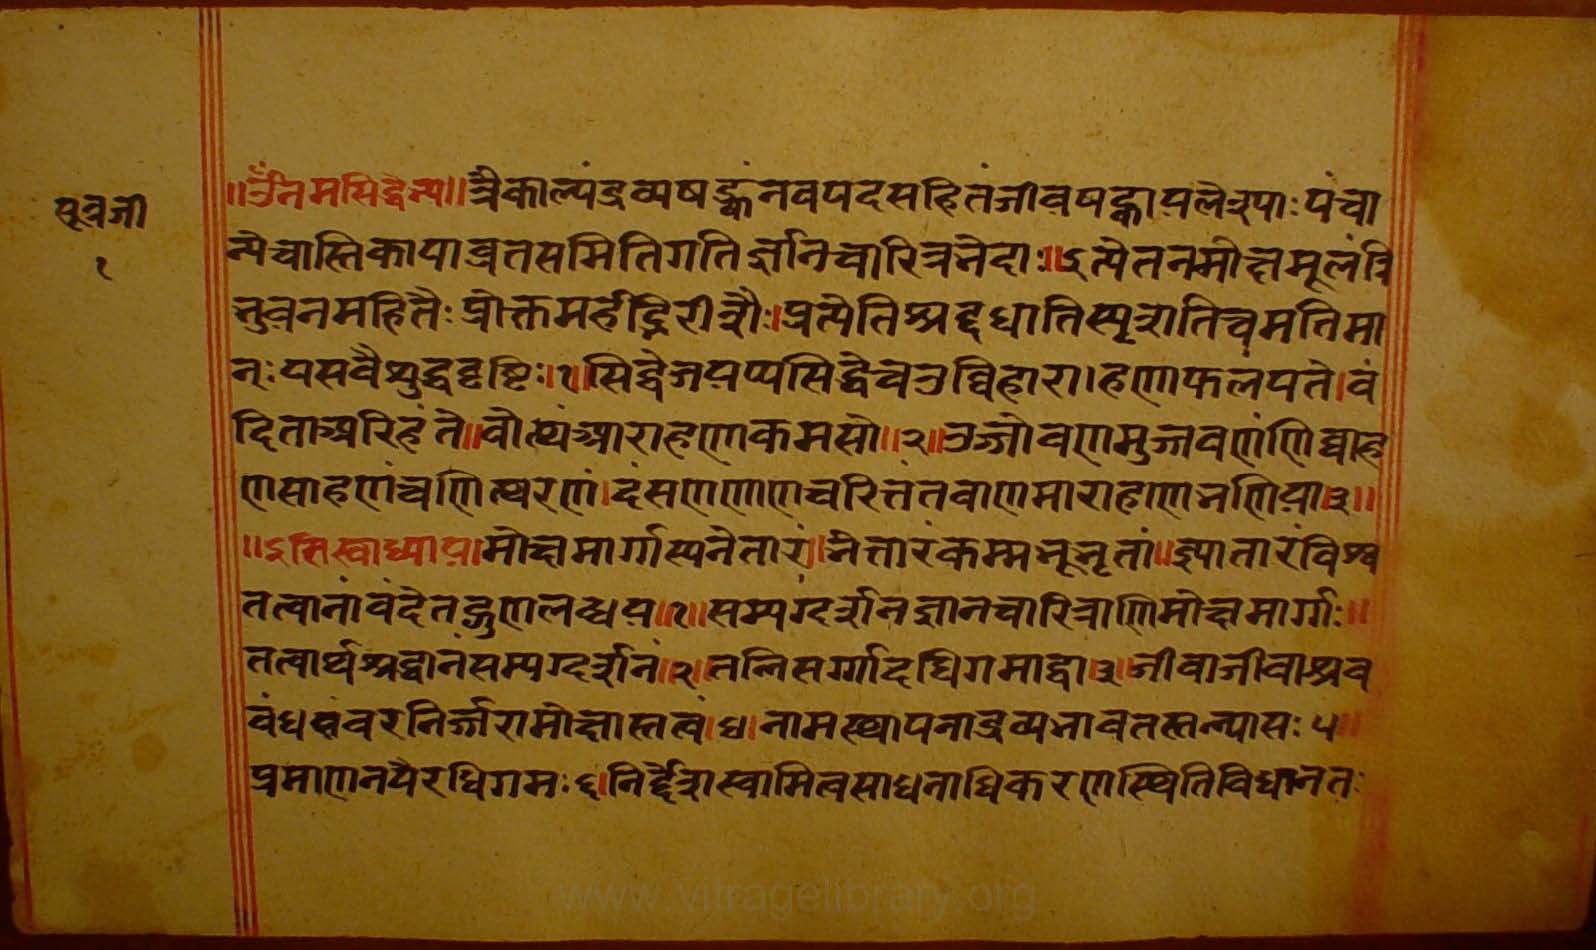 सूत्रजी
१
॥ॐनमसिद्धेभ्य॥त्रैकाल्यंद्रव्यषड्कंनवपदसहितंजीवषट्कायलेश्याःपंचा
न्येचास्तिकायाव्रतसमितिगतिर्ज्ञानचारित्रभेदाः॥इत्येतन्मोक्षमूलंत्रि
भुवनमहितैःप्रोक्तमर्हद्भिरीशैः।प्रत्येतिश्रद्दधातिस्पृशतिचमतिमा
न्ःयसवैशुद्धदृष्टिः।१॥सिद्धेजयप्पसिद्धेचेउव्विहारा।हणाफलपते।वं
दिताअरिहंते॥वोत्थंआराहणाकमसो॥२॥उज्जोवणमुज्जवणंणिव्वाह
णसाहणंचणित्थरणं।दंसणणाणचरित्तंतवाणमाराहणाभणिया।३॥
॥इतिस्वाध्याय।मोक्षमार्गास्यनेतारं।भेत्तारंकम्मभूभृतां॥ज्ञातारंविश्व
तत्वानांवंदेतद्गुणलब्धय॥१॥सम्यग्दर्शनज्ञानचारित्राणिमोक्षमार्गाः॥
तत्वार्थश्रद्धानंसम्यग्दर्शनं॥२॥तन्निसर्गादधिगमाद्वा।३।जीवाजीवाश्रव
बंधसंवरनिर्ज्जरामोक्षास्तत्वं।४।नामस्थापनाद्रव्यभावतस्तन्यासः५॥
प्रमाणनयैरधिगमः६।निर्द्देशस्वामित्वसाधनाधिकरणस्थितिविधानतः
www.vitragelibrary.org